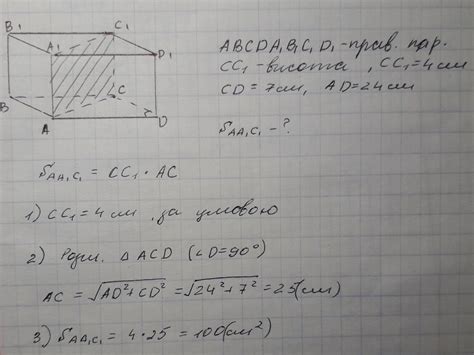 B₁ C₁
A₁ D₁
B C
A D
ABCDA₁B₁C₁D₁ - прав. пар.
CC₁ - висота, CC₁ = 4см
CD = 7см, AD = 24см
SAA₁C₁ - ?
SAA₁C₁ = CC₁ · AC
1) CC₁ = 4 см, за умовою
2) Розгл. △ ACD (∠D = 90°)
AC = √AD² + CD² = √24² + 7² = 25 (см)
3) SAA₁C₁ = 4 · 25 = 100 (см²)